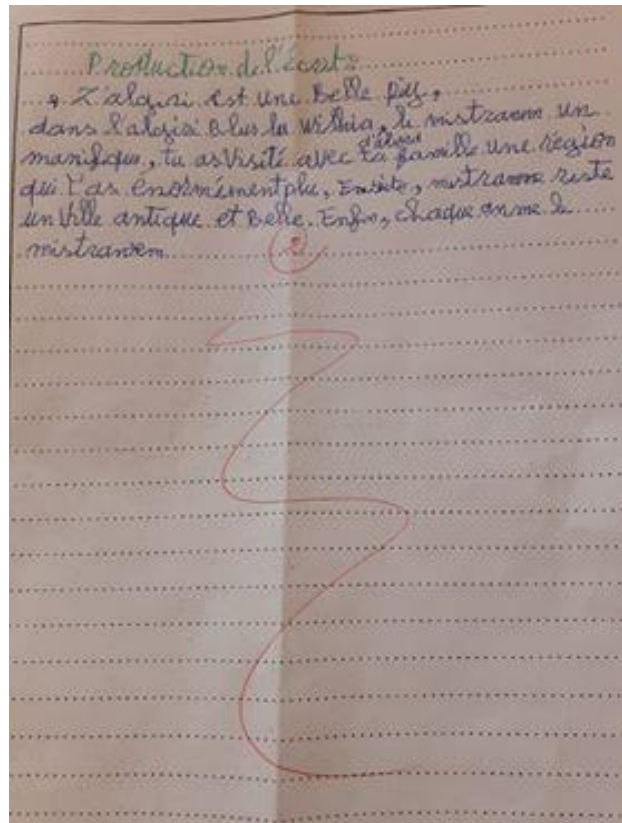 Production de l'écrit :
L'algiri est une Belle piy,
dans l'algisi Blus la withia, le mistranem un
manifique, tu as visité d'abord avec ta famille une région
qui t'as énormément plu, Ensite, mstramme reste
un Ville antique et Belle. Enfin, chaque anme le
mistranem
2